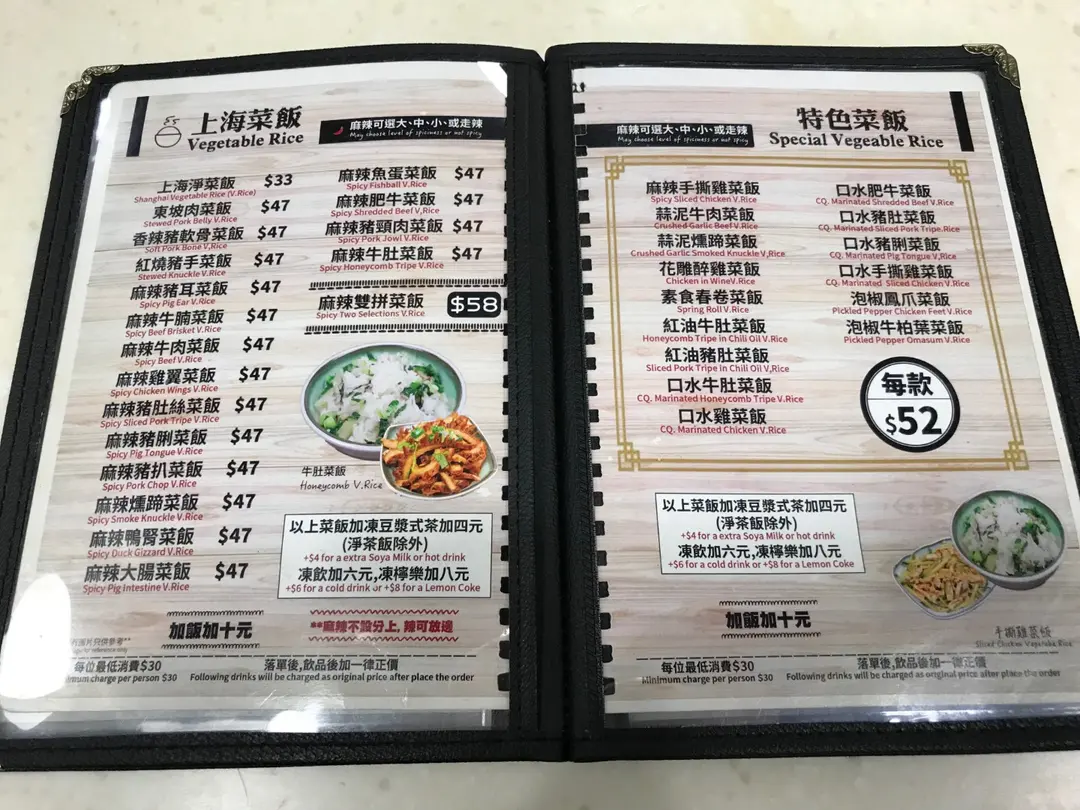 上海菜飯
Vegetable Rice
麻辣可選大、中、小、或走辣
May choose level of spiciness or not spicy
上海淨菜飯 $33
Shanghai Vegetable Rice (V.Rice)
東坡肉菜飯 $47
Stewed Pork Belly V.Rice
香辣豬軟骨菜飯 $47
Soft Pork Bone V,Rice
紅燒豬手菜飯 $47
Stewed Knuckle V.Rice
麻辣豬耳菜飯 $47
Spicy Pig Ear V.Rice
麻辣牛腩菜飯 $47
Spicy Beef Brisket V.Rice
麻辣牛肉菜飯 $47
Spicy Beef V.Rice
麻辣雞翼菜飯 $47
Spicy Chicken Wings V.Rice
麻辣豬肚絲菜飯 $47
Spicy Sliced Pork Tripe V.Rice
麻辣豬脷菜飯 $47
Spicy Pig Tongue V.Rice
麻辣豬扒菜飯 $47
Spicy Pork Chop V.Rice
麻辣燻蹄菜飯 $47
Spicy Smoke Knuckle V.Rice
麻辣鴨腎菜飯 $47
Spicy Duck Gizzard V.Rice
麻辣大腸菜飯 $47
Spicy Pig Intestine V.Rice
麻辣魚蛋菜飯 $47
Spicy Fishball V.Rice
麻辣肥牛菜飯 $47
Spicy Shredded Beef V,Rice
麻辣豬頸肉菜飯 $47
Spicy Pork Jowl V.Rice
麻辣牛肚菜飯 $47
Spicy Honeycomb Tripe V.Rice
麻辣雙拼菜飯 $58
Spicy Two Selections V.Rice
牛肚菜飯
Honeycomb V.Rice
以上菜飯加凍豆漿式茶加四元
(淨茶飯除外)
+$4 for a extra Soya Milk or hot drink
凍飲加六元,凍檸樂加八元
+$6 for a cold drink or +$8 for a Lemon Coke
加飯加十元
**麻辣不設分上, 辣可放邊
圖片只供參考**
for reference only
每位最低消費$30
Minimum charge per person $30
落單後,飲品後加一律正價
Following drinks will be charged as original price after place the order
麻辣可選大、中、小、或走辣
May choose level of spiciness or not spicy
特色菜飯
Special Vegeable Rice
麻辣手撕雞菜飯
Spicy Sliced Chicken V.Rice
蒜泥牛肉菜飯
Crushed Garlic Beef V.Rice
蒜泥燻蹄菜飯
Crushed Garlic Smoked Knuckle V,Rice
花雕醉雞菜飯
Chicken in WineV.Rice
素食春卷菜飯
Spring Roll V.Rice
紅油牛肚菜飯
Honeycomb Tripe in Chili Oil V.Rice
紅油豬肚菜飯
Sliced Pork Tripe in Chili Oil V,Rice
口水牛肚菜飯
CQ. Marinated Honeycomb Tripe V.Rice
口水雞菜飯
CQ. Marinated Chicken V.Rice
口水肥牛菜飯
CQ. Marinated Shredded Beef V.Rice
口水豬肚菜飯
CQ. Marinated Sliced Pork Tripe.Rice
口水豬脷菜飯
CQ. Marinated Pig Tongue V,Rice
口水手撕雞菜飯
CQ. Marinated Sliced Chicken V.Rice
泡椒鳳爪菜飯
Pickled Pepper Chicken Feet V.Rice
泡椒牛柏葉菜飯
Pickled Pepper Omasum V.Rice
每款
$52
以上菜飯加凍豆漿式茶加四元
(淨茶飯除外)
+$4 for a extra Soya Milk or hot drink
凍飲加六元,凍檸樂加八元
+$6 for a cold drink or +$8 for a Lemon Coke
加飯加十元
手撕雞菜飯
Sliced Chicken Vegetable Rice
每位最低消費$30
Minimum charge per person $30
落單後,飲品後加一律正價
Following drinks will be charged as original price after place the order